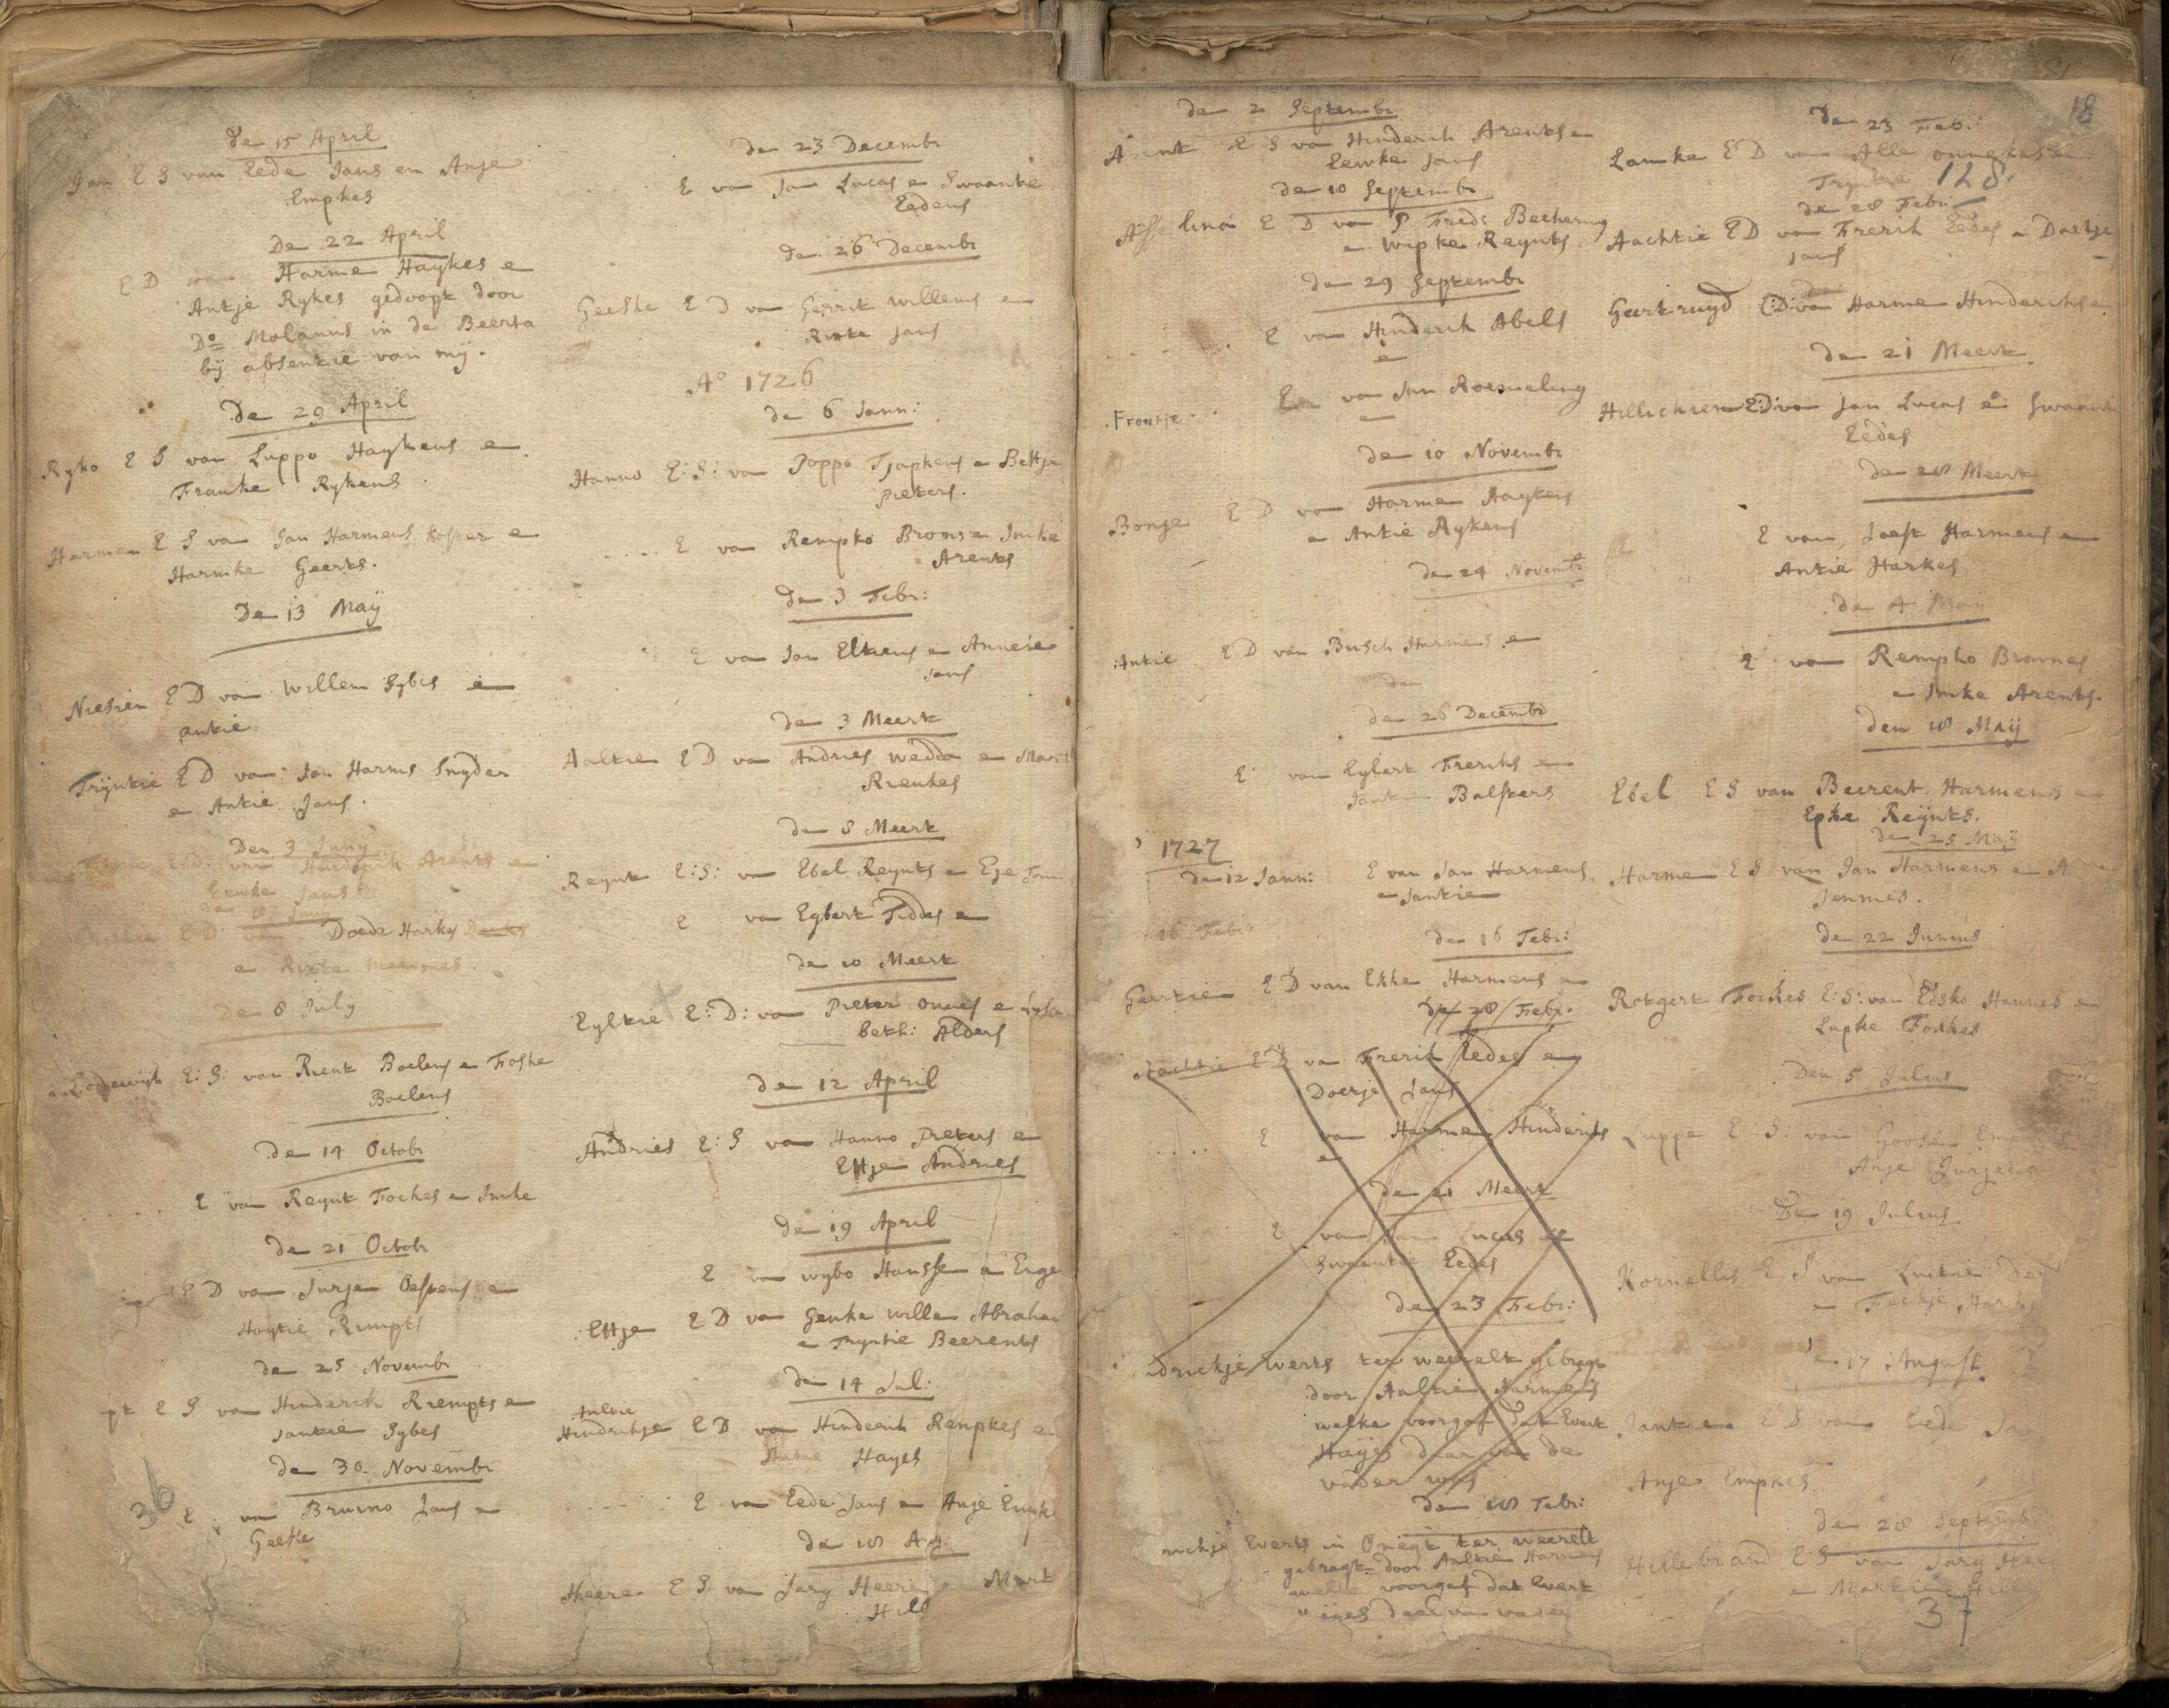 de 15 April
Jan E S van Eede Jans en Anje
Empkes
De 22 April
E D van Harme Haykes e
Antje Rykes gedoopt door
Do Molanus in de Beerta
bij absentie van mij.
De 29 April
Ryko E S van Luppo Haykens e
Frauke Rykens
Harmen E S van Jan Harmens Koster e
Harmke Geerts.
De 13 Maij
Niesien E D van Willem Sybes e
antie
Trijntie E D van Jan Harms Snyder
e Antie Jans.
Den 3 Junij
E D van Hinderik Arents e
Eewke Jans
E D van Doede Harkes
e Rixte Mammes.
de 8 July
Lodewijk E: S: van Rient Boelens e Foske
Boelens
de 14 Octobr
E van Reynt Fockes e Imke
de 21 Octobr
E D van Jurjen Oespens e
Haytie Rimpts
de 25 Novembr
E S van Hinderik Rrempts e
Jantie Sybes
de 30 Novembr
E van Bruno Jans e
Geeske
36
de 23 Decembr
E van Jan Lucas e Swaantie
Eedens
de 26 Decembr
Geeske E D van Gerrit Willems e
Rixte Jans
Ao 1726
de 6 Jann:
Hanno E: S: van Poppo Tjapkens e Beltje
Pieters.
E van Rempko Brons e Imke
Arents
de 3 Febr:
E van Jan Eltiens e Annetie
Jans
de 3 Meert
Aaltien E D van Andries Wedda e
Rienties
de 8 Meert
Reynt E: S: van Ebel Reynts e Eje
E van Egbert Fiddes e
de 10 Meert
Eyltie E: D: van Pieter Onnes e
beth: Alders
de 12 April
Andries E: S van Hanno Pieters e
Eltje Andries
de 19 April
E van Wybo Hansse e Enge
Eltje E D van Geuke Willem Abraha
e Tryntie Beerents
de 14 Jul:
Antie
Hindrikje E D van Hinderik Rempkes e
Hayes
E van Eede Jans e Anje Empk
de 18 Aug
Heere E S van Jary Heeres e
Hill
de 2 Septembr
Arent E S van Hinderik Arents e
Eewke Jans
de 10 Septembr
Asselina E D van P Fredr Beekering
e Wipke Reynts.
de 29 Septembr
E van Hinderik Abels
e
Froutje E van Jan Roemeling
e
de 10 Novembr
Bonje E D van Harme Haykens
e Antie Rykens
de 24 Novembr
Antie E D van Busch Harmens e
de
de 26 Decembr
E van Eylert Frerichs e
Jantie Balsters
1727
de 12 Jann: E van Jan Harmens,
e Jantie
16 Febr:
de 16 Febr:
Geertien E D van Ekke Harmens e
de 28 Febr.
Aachtie E D van Frerik Eedes e
Doetje Jans
E van Harme Hinderiks
e
de 21 Meert
E van Jan Lucas e
Swaantie Eedes
de 23 Febr:
drickje Everts ter weerelt gebragt
door Aaltien Harmens
welke voorgaf dat Evert
Hayes daar van de
vader was
den 18 Febr:
rickje Everts in Onegt ter weerelt
gebragt door Aaltien Harmens
welke voorgaf dat Evert
daar van vader
18
de 23 Febr:
Lamke E D van Alle Onnekes e
Tryntie
128.
de 28 Febr:
Aachtie E D van Frerik Eedes e Doetje
Jans
Geertruyd E: D: van Harme Hinderiks e
de 21 Meert
Hillichien E: D: van Jan Lucas e Swaanti
Eedes
de 28 Meert
E van Joest Harmens e
Antie Harkes
de 4 Maij
E van Rempko Bronnes
e Imke Arents.
den 18 Maij
Ebel E S van Beerent Harmens e
Epke Reijnts.
de 25 Maij
Harme E S van Jan Harmens e A
Jennies.
de 22 Junius
Rotgert Fockes E: S: van Edsko Hannes e
Lupke Fockes
Den 5 Julius
Luppe E: S: van Goosen
Anje Jurjens
De 19 Julius
Kornellis E, S van Luitien
e Feekje
17 August
Jantien E D van Eede Ja
Anje Empkes
de 28 Septembr
Hillebrand E S van Jary Hee
e Martien Hill
37